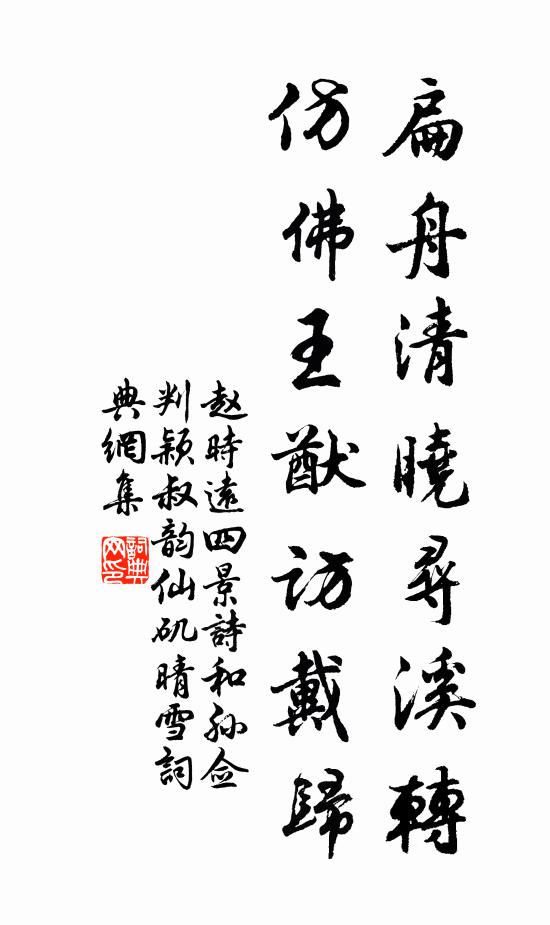 扁舟清曉尋溪轉
仿佛王猷訪戴歸
赵時遠四景詩和孙佥
判颖叔韵仙矶晴雪詞
典網集
詞典
网印